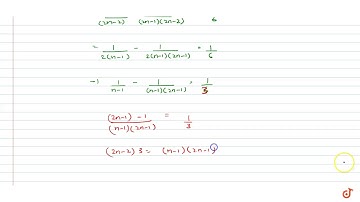 (2n-2) (2n-1)(2n-2) 6
= 1/2(n-1) - 1/2(n-1)(2n-1) = 1/6
→ 1/n-1 - 1/(n-1)(2n-1) = 1/3
(2n-1) - 1/(n-1)(2n-1) = 1/3
(2n-2) 3 = (n-1)(2n-1)